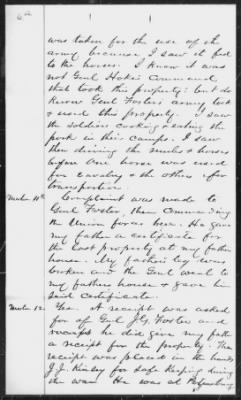 6th
was taken for the use of the
army because I saw it fed
to the horses. I know it was
not Genl Hoke's Command
that took this property: but do
know Genl Foster's army took
& used this property. I saw
the soldiers cooking & eating the
pork in their camps. I saw
them driving the mules & horses
before. One horse was used
for cavalry & the others for
transportion.
Number 11th Complaint was made to
Genl Foster, then Commanding
the Union forces here. He gave
my father a certificate for
the lost property at my father
house. My father's leg was
broken and the Genl went to
my fathers house & gave him
said certificate.
Number 12. Yes. A receipt was asked
for of Genl J.G. Foster and
receipt he did give my father
a receipt for the property. The
receipt was placed in the hands
J.J. Kinsey for safe keeping during
the war. He was at Petersburg